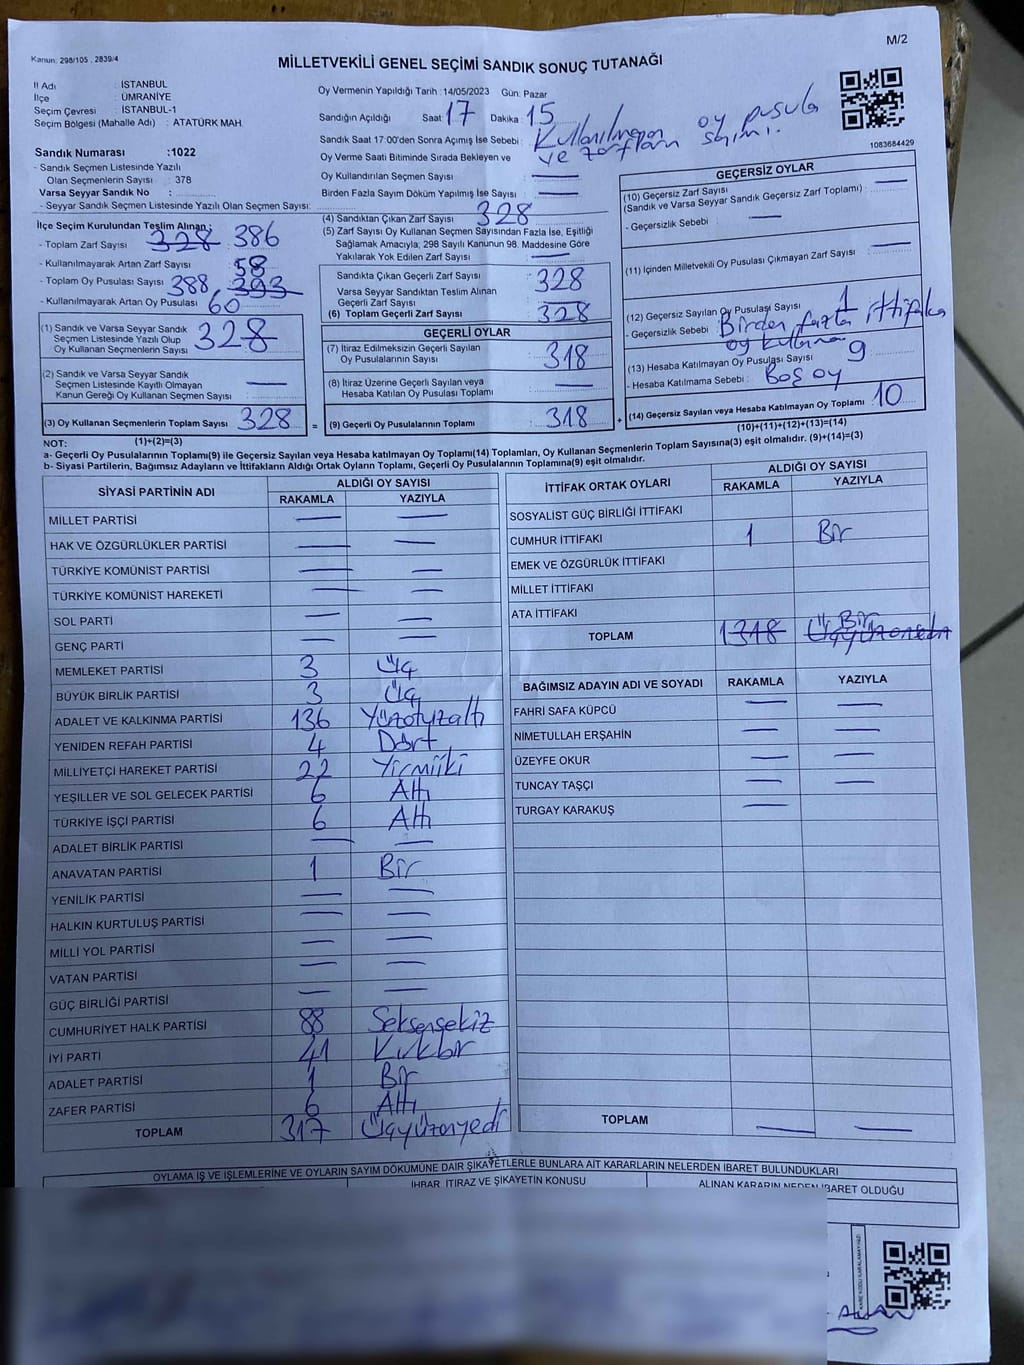 M/2
Kanun: 298/105 , 2839/4
MİLLETVEKİLİ GENEL SEÇİMİ SANDIK SONUÇ TUTANAĞI
İl Adı : İSTANBUL
İlçe : ÜMRANİYE
Seçim Çevresi : İSTANBUL-1
Seçim Bölgesi (Mahalle Adı) : ATATÜRK MAH.
Sandık Numarası :1022
- Sandık Seçmen Listesinde Yazılı
Olan Seçmenlerin Sayısı : 378
Varsa Seyyar Sandık No :
- Seyyar Sandık Seçmen Listesinde Yazılı Olan Seçmen Sayısı:
Oy Vermenin Yapıldığı Tarih :14/05/2023 Gün: Pazar
Sandığın Açıldığı Saat: 17 Dakika : 15
Sandık Saat 17.00'den Sonra Açılmış İse Sebebi : Kullanılmayan oy pusula
ve zarfların sayımı.
Oy Verme Saati Bitiminde Sırada Bekleyen ve
Oy Kullandırılan Seçmen Sayısı : —
Birden Fazla Sayım Döküm Yapılmış İse Sayısı : —
1083684429
İlçe Seçim Kurulundan Teslim Alınan :
- Toplam Zarf Sayısı : 328 386
- Kullanılmayarak Artan Zarf Sayısı : 58
- Toplam Oy Pusulası Sayısı : 388 393
- Kullanılmayarak Artan Oy Pusulası : 60
(1) Sandık ve Varsa Seyyar Sandık
Seçmen Listesinde Yazılı Olup
Oy Kullanan Seçmenlerin Sayısı : 328
(2) Sandık ve Varsa Seyyar Sandık
Seçmen Listesinde Kayıtlı Olmayan
Kanun Gereği Oy Kullanan Seçmen Sayısı : —
(3) Oy Kullanan Seçmenlerin Toplam Sayısı : 328 =
(1)+(2)=(3)
(4) Sandıktan Çıkan Zarf Sayısı : 328
(5) Zarf Sayısı Oy Kullanan Seçmen Sayısından Fazla İse, Eşitliği
Sağlamak Amacıyla, 298 Sayılı Kanunun 98. Maddesine Göre
Yakılarak Yok Edilen Zarf Sayısı : —
Sandıkta Çıkan Geçerli Zarf Sayısı : 328
Varsa Seyyar Sandıktan Teslim Alınan
Geçerli Zarf Sayısı : —
(6) Toplam Geçerli Zarf Sayısı : 328
GEÇERLİ OYLAR
(7) İtiraz Edilmeksizin Geçerli Sayılan
Oy Pusulalarının Sayısı : 318
(8) İtiraz Üzerine Geçerli Sayılan veya
Hesaba Katılan Oy Pusulası Toplamı : —
(9) Geçerli Oy Pusulalarının Toplamı : 318 +
GEÇERSİZ OYLAR
(10) Geçersiz Zarf Sayısı : —
(Sandık ve Varsa Seyyar Sandık Geçersiz Zarf Toplamı)
- Geçersizlik Sebebi : —
(11) İçinden Milletvekili Oy Pusulası Çıkmayan Zarf Sayısı : —
(12) Geçersiz Sayılan Oy Pusulası Sayısı : 1
- Geçersizlik Sebebi : Birden fazla ittifaka
oy kullanma
(13) Hesaba Katılmayan Oy Pusulası Sayısı : 9
- Hesaba Katılmama Sebebi : Boş oy
(14) Geçersiz Sayılan veya Hesaba Katılmayan Oy Toplamı : 10
(10)+(11)+(12)+(13)=(14)
NOT:
a- Geçerli Oy Pusulalarının Toplamı(9) ile Geçersiz Sayılan veya Hesaba katılmayan Oy Toplamı(14) Toplamları, Oy Kullanan Seçmenlerin Toplam Sayısına(3) eşit olmalıdır. (9)+(14)=(3)
b- Siyasi Partilerin, Bağımsız Adayların ve İttifakların Aldığı Ortak Oyların Toplamı, Geçerli Oy Pusulalarının Toplamına(9) eşit olmalıdır.
SİYASİ PARTİNİN ADI ALDIĞI OY SAYISI
RAKAMLA YAZIYLA
MİLLET PARTİSİ — —
HAK VE ÖZGÜRLÜKLER PARTİSİ — —
TÜRKİYE KOMÜNİST PARTİSİ — —
TÜRKİYE KOMÜNİST HAREKETİ — —
SOL PARTİ — —
GENÇ PARTİ — —
MEMLEKET PARTİSİ 3 Üç
BÜYÜK BİRLİK PARTİSİ 3 Üç
ADALET VE KALKINMA PARTİSİ 136 Yüzotuzaltı
YENİDEN REFAH PARTİSİ 4 Dört
MİLLİYETÇİ HAREKET PARTİSİ 22 Yirmiiki
YEŞİLLER VE SOL GELECEK PARTİSİ 6 Altı
TÜRKİYE İŞÇİ PARTİSİ 6 Altı
ADALET BİRLİK PARTİSİ — —
ANAVATAN PARTİSİ 1 Bir
YENİLİK PARTİSİ — —
HALKIN KURTULUŞ PARTİSİ — —
MİLLİ YOL PARTİSİ — —
VATAN PARTİSİ — —
GÜÇ BİRLİĞİ PARTİSİ — —
CUMHURİYET HALK PARTİSİ 88 Seksensekiz
İYİ PARTİ 41 Kırkbir
ADALET PARTİSİ 1 Bir
ZAFER PARTİSİ 6 Altı
TOPLAM 317 Üçyüzonyedi
İTTİFAK ORTAK OYLARI ALDIĞI OY SAYISI
RAKAMLA YAZIYLA
SOSYALİST GÜÇ BİRLİĞİ İTTİFAKI
CUMHUR İTTİFAKI 1 Bir
EMEK VE ÖZGÜRLÜK İTTİFAKI
MİLLET İTTİFAKI
ATA İTTİFAKI
TOPLAM 1318 Bir
BAĞIMSIZ ADAYIN ADI VE SOYADI RAKAMLA YAZIYLA
FAHRİ SAFA KÜPCÜ — —
NİMETULLAH ERŞAHİN — —
ÜZEYFE OKUR — —
TUNCAY TAŞÇI — —
TURGAY KARAKUŞ —
TOPLAM — —
OYLAMA İŞ VE İŞLEMLERİNE VE OYLARIN SAYIM DÖKÜMÜNE DAİR ŞİKAYETLERLE BUNLARA AİT KARARLARIN NELERDEN İBARET BULUNDUKLARI
İHBAR, İTİRAZ VE ŞİKAYETİN KONUSU ALINAN KARARIN NEDEN İBARET OLDUĞU